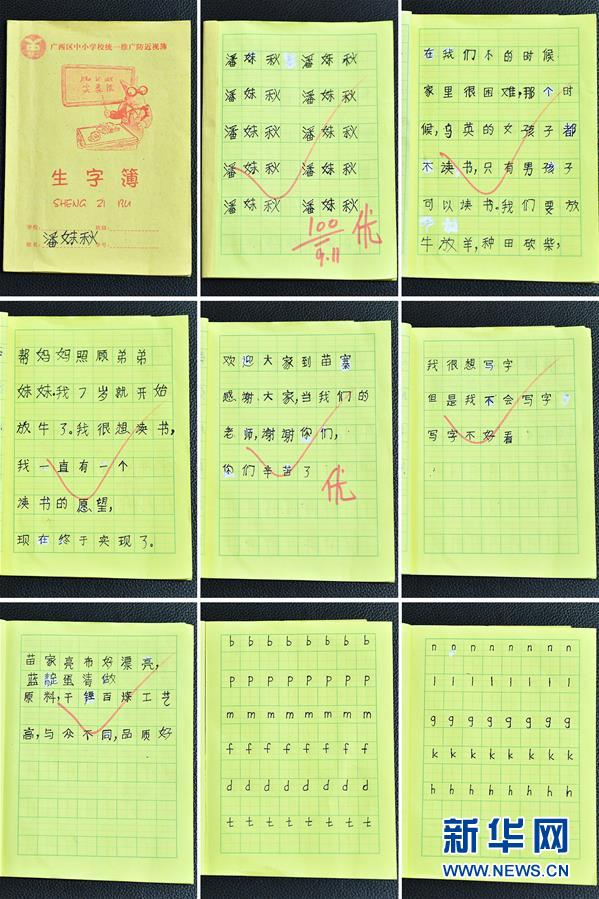 广西区中小学校统一推广防近视簿
生字簿
SHENG ZI BU
学校: 班级:
姓名: 潘妹秋 学号:
潘妹秋 潘妹秋
潘妹秋 潘妹秋
潘妹秋 潘妹秋
潘妹秋 潘妹秋
潘妹秋 潘妹秋
100 优
9.11
在我们不的时候
家里很困难,那个时
候,乌英的女孩子都
不读书,只有男孩子
可以读书.我们要放
牛放羊,种田砍柴,
帮妈妈照顾弟弟
妹妹.我7岁就开始
放牛了.我很想读书,
我一直有一个
读书的愿望,
现在终于实现了.
欢迎大家到苗寨
感谢大家,当我们的
老师,谢谢你们,
你们辛苦了
优
我很想写字
但是我不会写字
写字不好看
苗家亮布好漂亮,
蓝靛蛋清做
原料,千锤百炼工艺
高,与众不同,品质好
b b b b b b b b
p p p p p p p p
m m m m m m m m
f f f f f f f f
d d d d d d d d
t t t t t t t t
n n n n n n n n
l l l l l l l l
g g g g g g g g
k k k k k k k k
h h h h h h h h
新华网
WWW.NEWS.CN